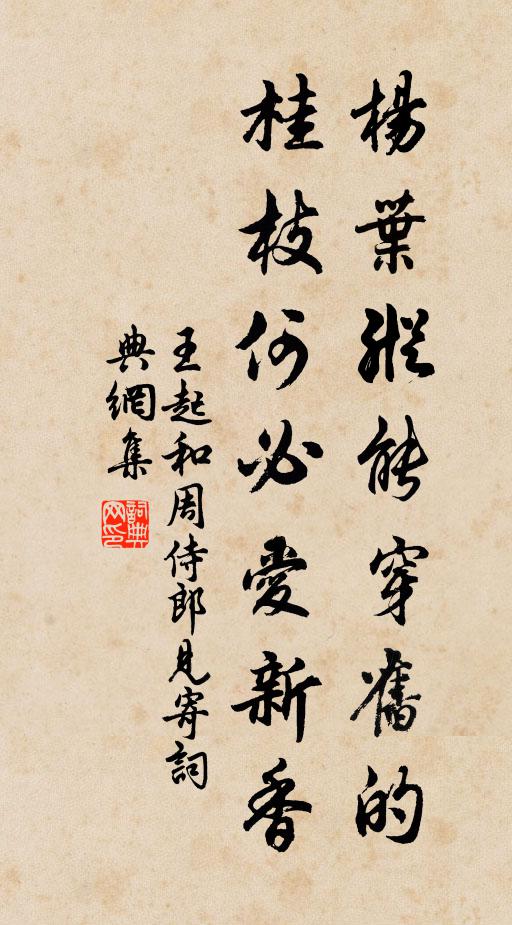 楊葉縱能穿舊的
桂枝何必愛新香
王起和周侍郎見寄詞
典網集
詞典
网印